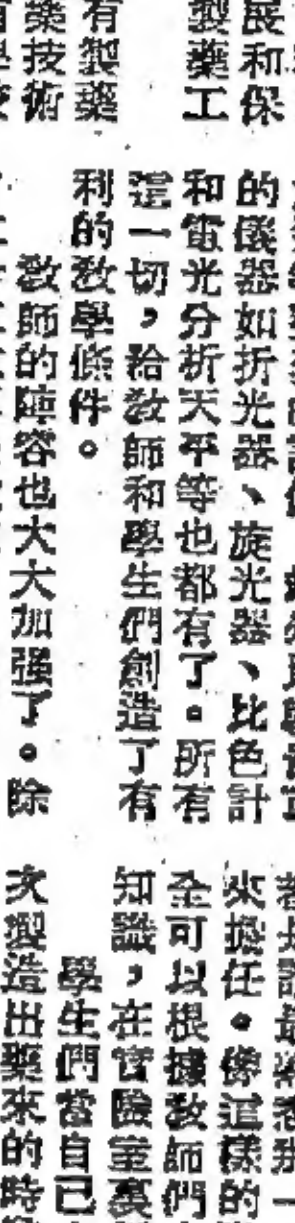 展和保
製藥工
有製藥
藥技術
的儀器如折光器、旋光器、比色計
和電光分折天平等也都有了。所有
這一切，給教師和學生們創造了有
利的教學條件。
教師的陣容也大大加强了。除
來擔任。像這樣的
全可以根據教師們
知識，在實驗室裏
學生們當自己
次製造出藥來的時